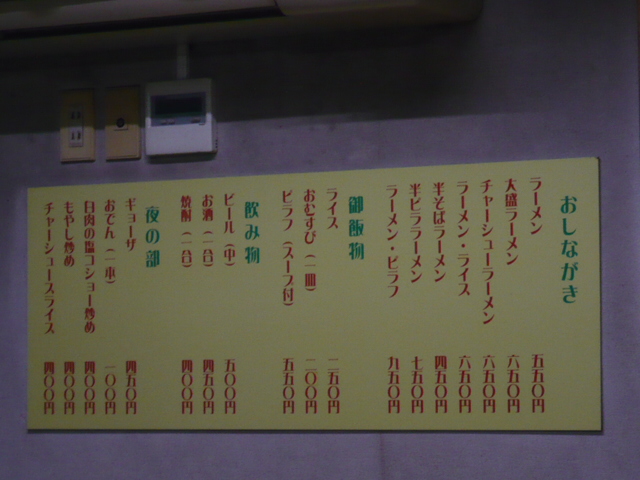 おしながき
ラーメン 五五〇円
大盛ラーメン 六五〇円
チャーシューラーメン 六五〇円
ラーメン・ライス 六五〇円
半そばラーメン 四五〇円
半ピララーメン 七五〇円
ラーメン・ピラフ 九五〇円
御飯物
ライス 二五〇円
おむすび（一皿） 二〇〇円
ピラフ（スープ付） 五五〇円
飲み物
ビール（中） 五〇〇円
お酒（一合） 四五〇円
焼酎（一合） 四〇〇円
夜の部
ギョーザ 四五〇円
おでん（一本） 一〇〇円
白肉の塩コショー炒め 四〇〇円
もやし炒め 四〇〇円
チャーシュースライス 四〇〇円